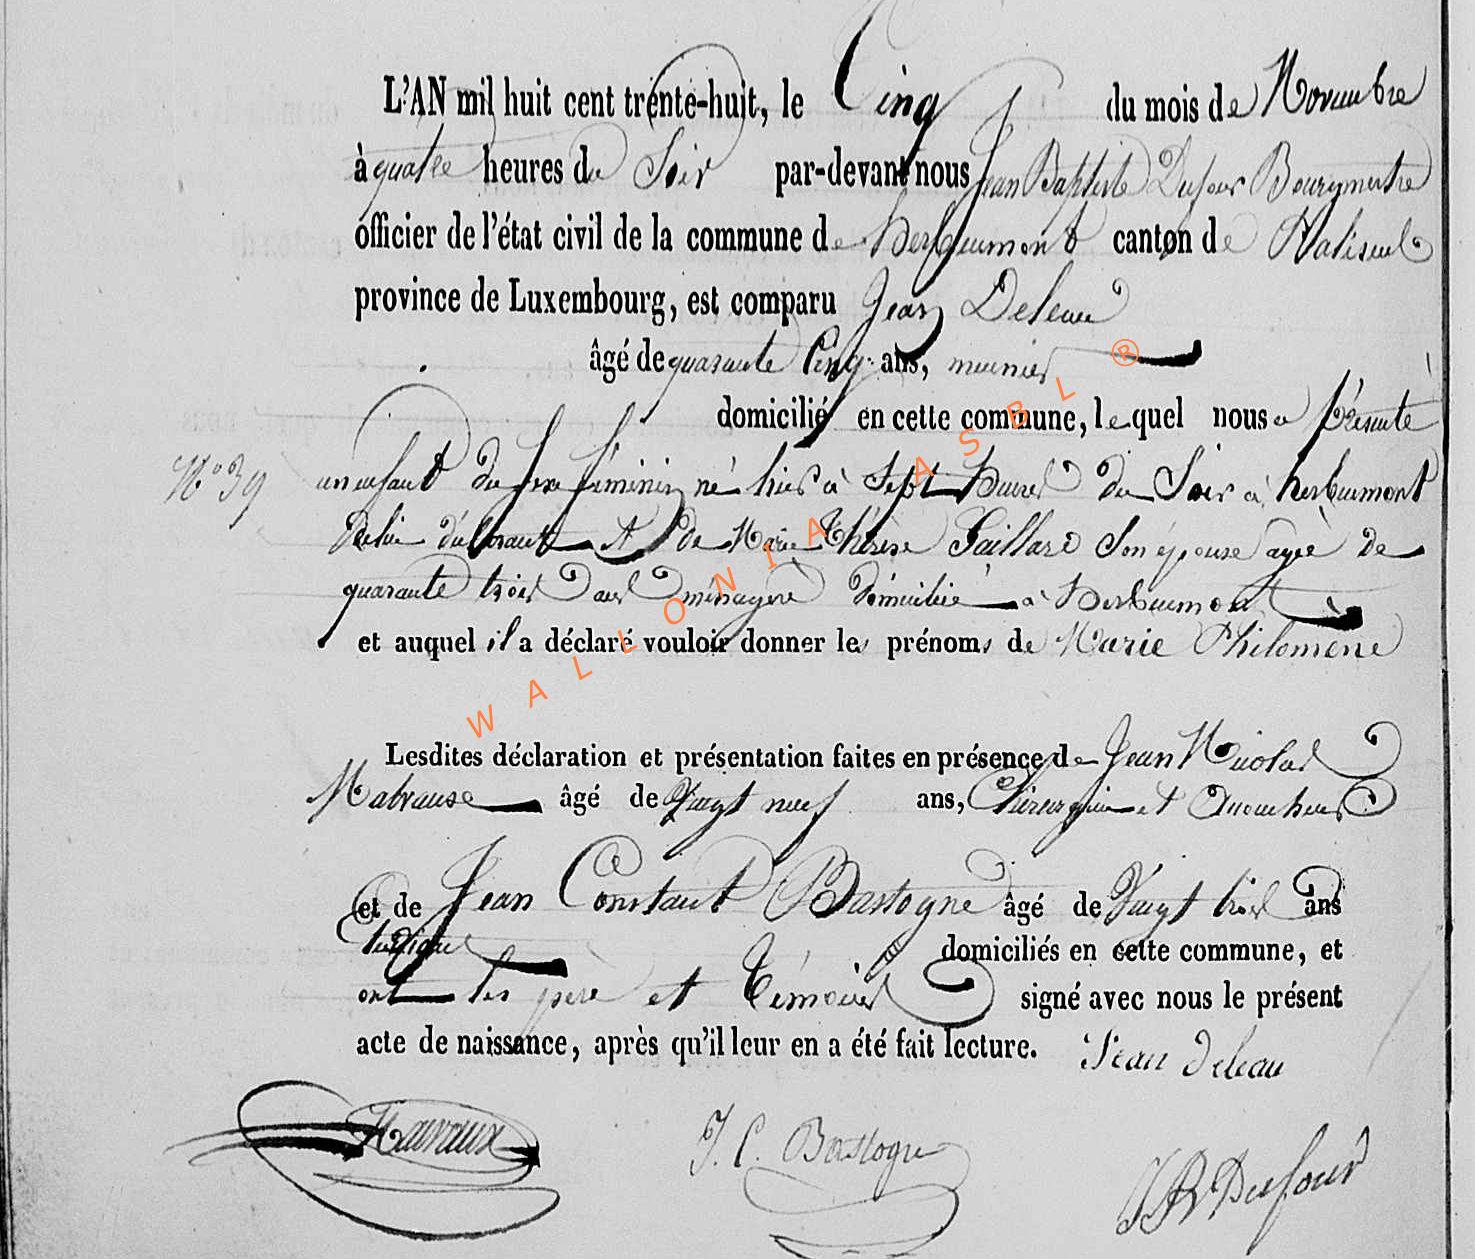 L'AN mil huit cent trente-huit, le Cinq du mois de Novembre
à quatre heures du Soir par-devant nous Jean Baptiste Dufour Bourgmestre
officier de l'état civil de la commune de Herbeumont canton de Paliseul
province de Luxembourg, est comparu Jean Deleau
âgé de quarante Cinq ans, meunier
domicilié en cette commune, lequel nous a présenté
N° 39 un enfant du sexe féminin né hier à Sept heures du Soir à herbeumont
de lui déclarant et de Marie Thérèse Gaillard Son épouse agée de
quarante trois ans ménagère domiciliée à Herbeumont
et auquel il a déclaré vouloir donner les prénoms de Marie Philomène
Lesdites déclaration et présentation faites en présence de Jean Nicolas
âgé de Vingt neuf ans, Chirurgien et Accoucheur
et de Jean Constant Bastogne âgé de Vingt trois ans
domiciliés en cette commune, et
ont les père et Témoins signé avec nous le présent
acte de naissance, après qu'il leur en a été fait lecture.
Jean Deleau
J. C. Bastogne
JB Dufour
WALLONIA ASBL ®